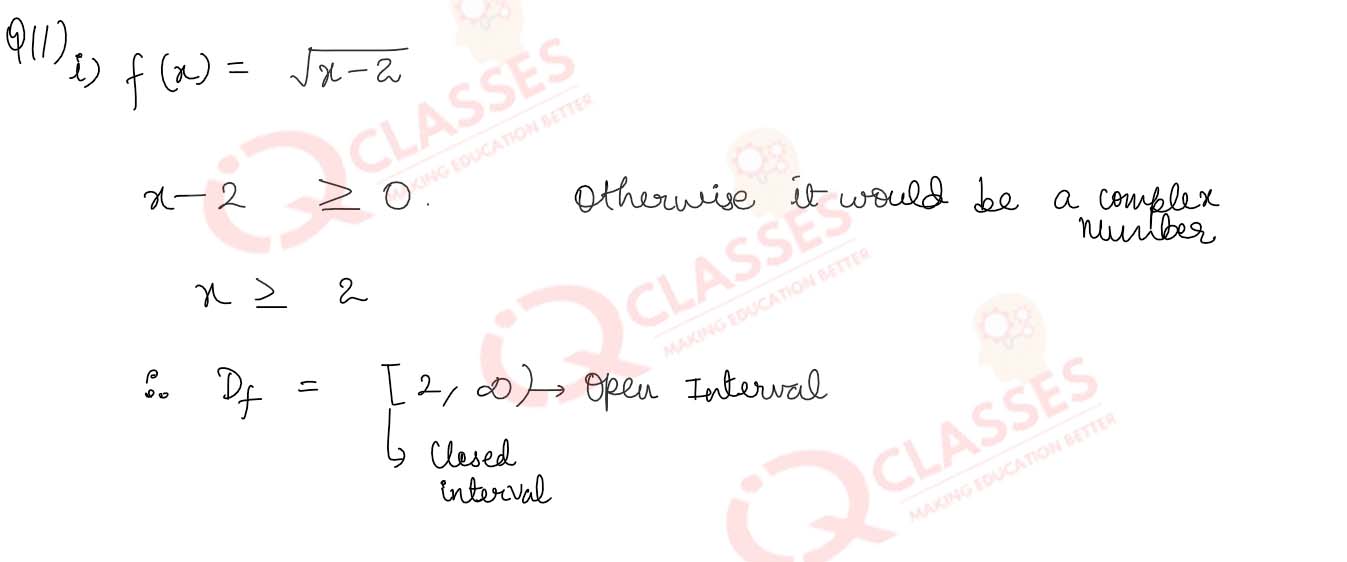 Q11) i) f(x) = √x-2
x-2 ≥ 0. Otherwise it would be a complex number
x ≥ 2
∴ Df = [2, ∞) → Open Interval
↳ Closed
interval
iQ CLASSES
MAKING EDUCATION BETTER
iQ CLASSES
MAKING EDUCATION BETTER
iQ CLASSES
MAKING EDUCATION BETTER